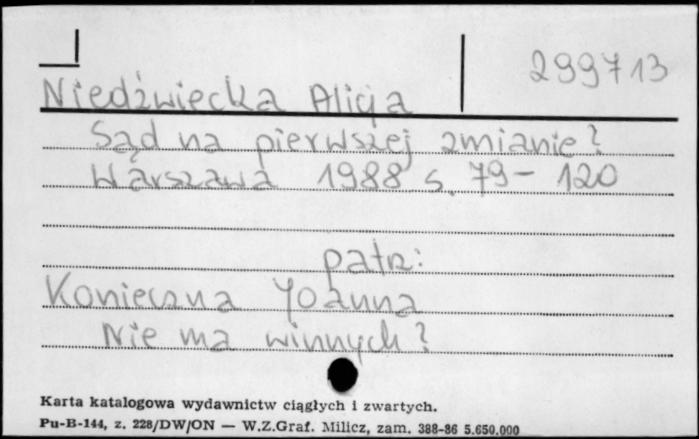 299713
Niedźwiecka Alicja
Sąd na pierwszej zmianie?
Warszawa 1988 s. 79-120
patrz:
Konieczna Joanna
Nie ma winnych?
Karta katalogowa wydawnictw ciągłych i zwartych.
Pu-B-144, z. 228/DW/ON — W.Z.Graf. Milicz, zam. 388-86 5.650.000